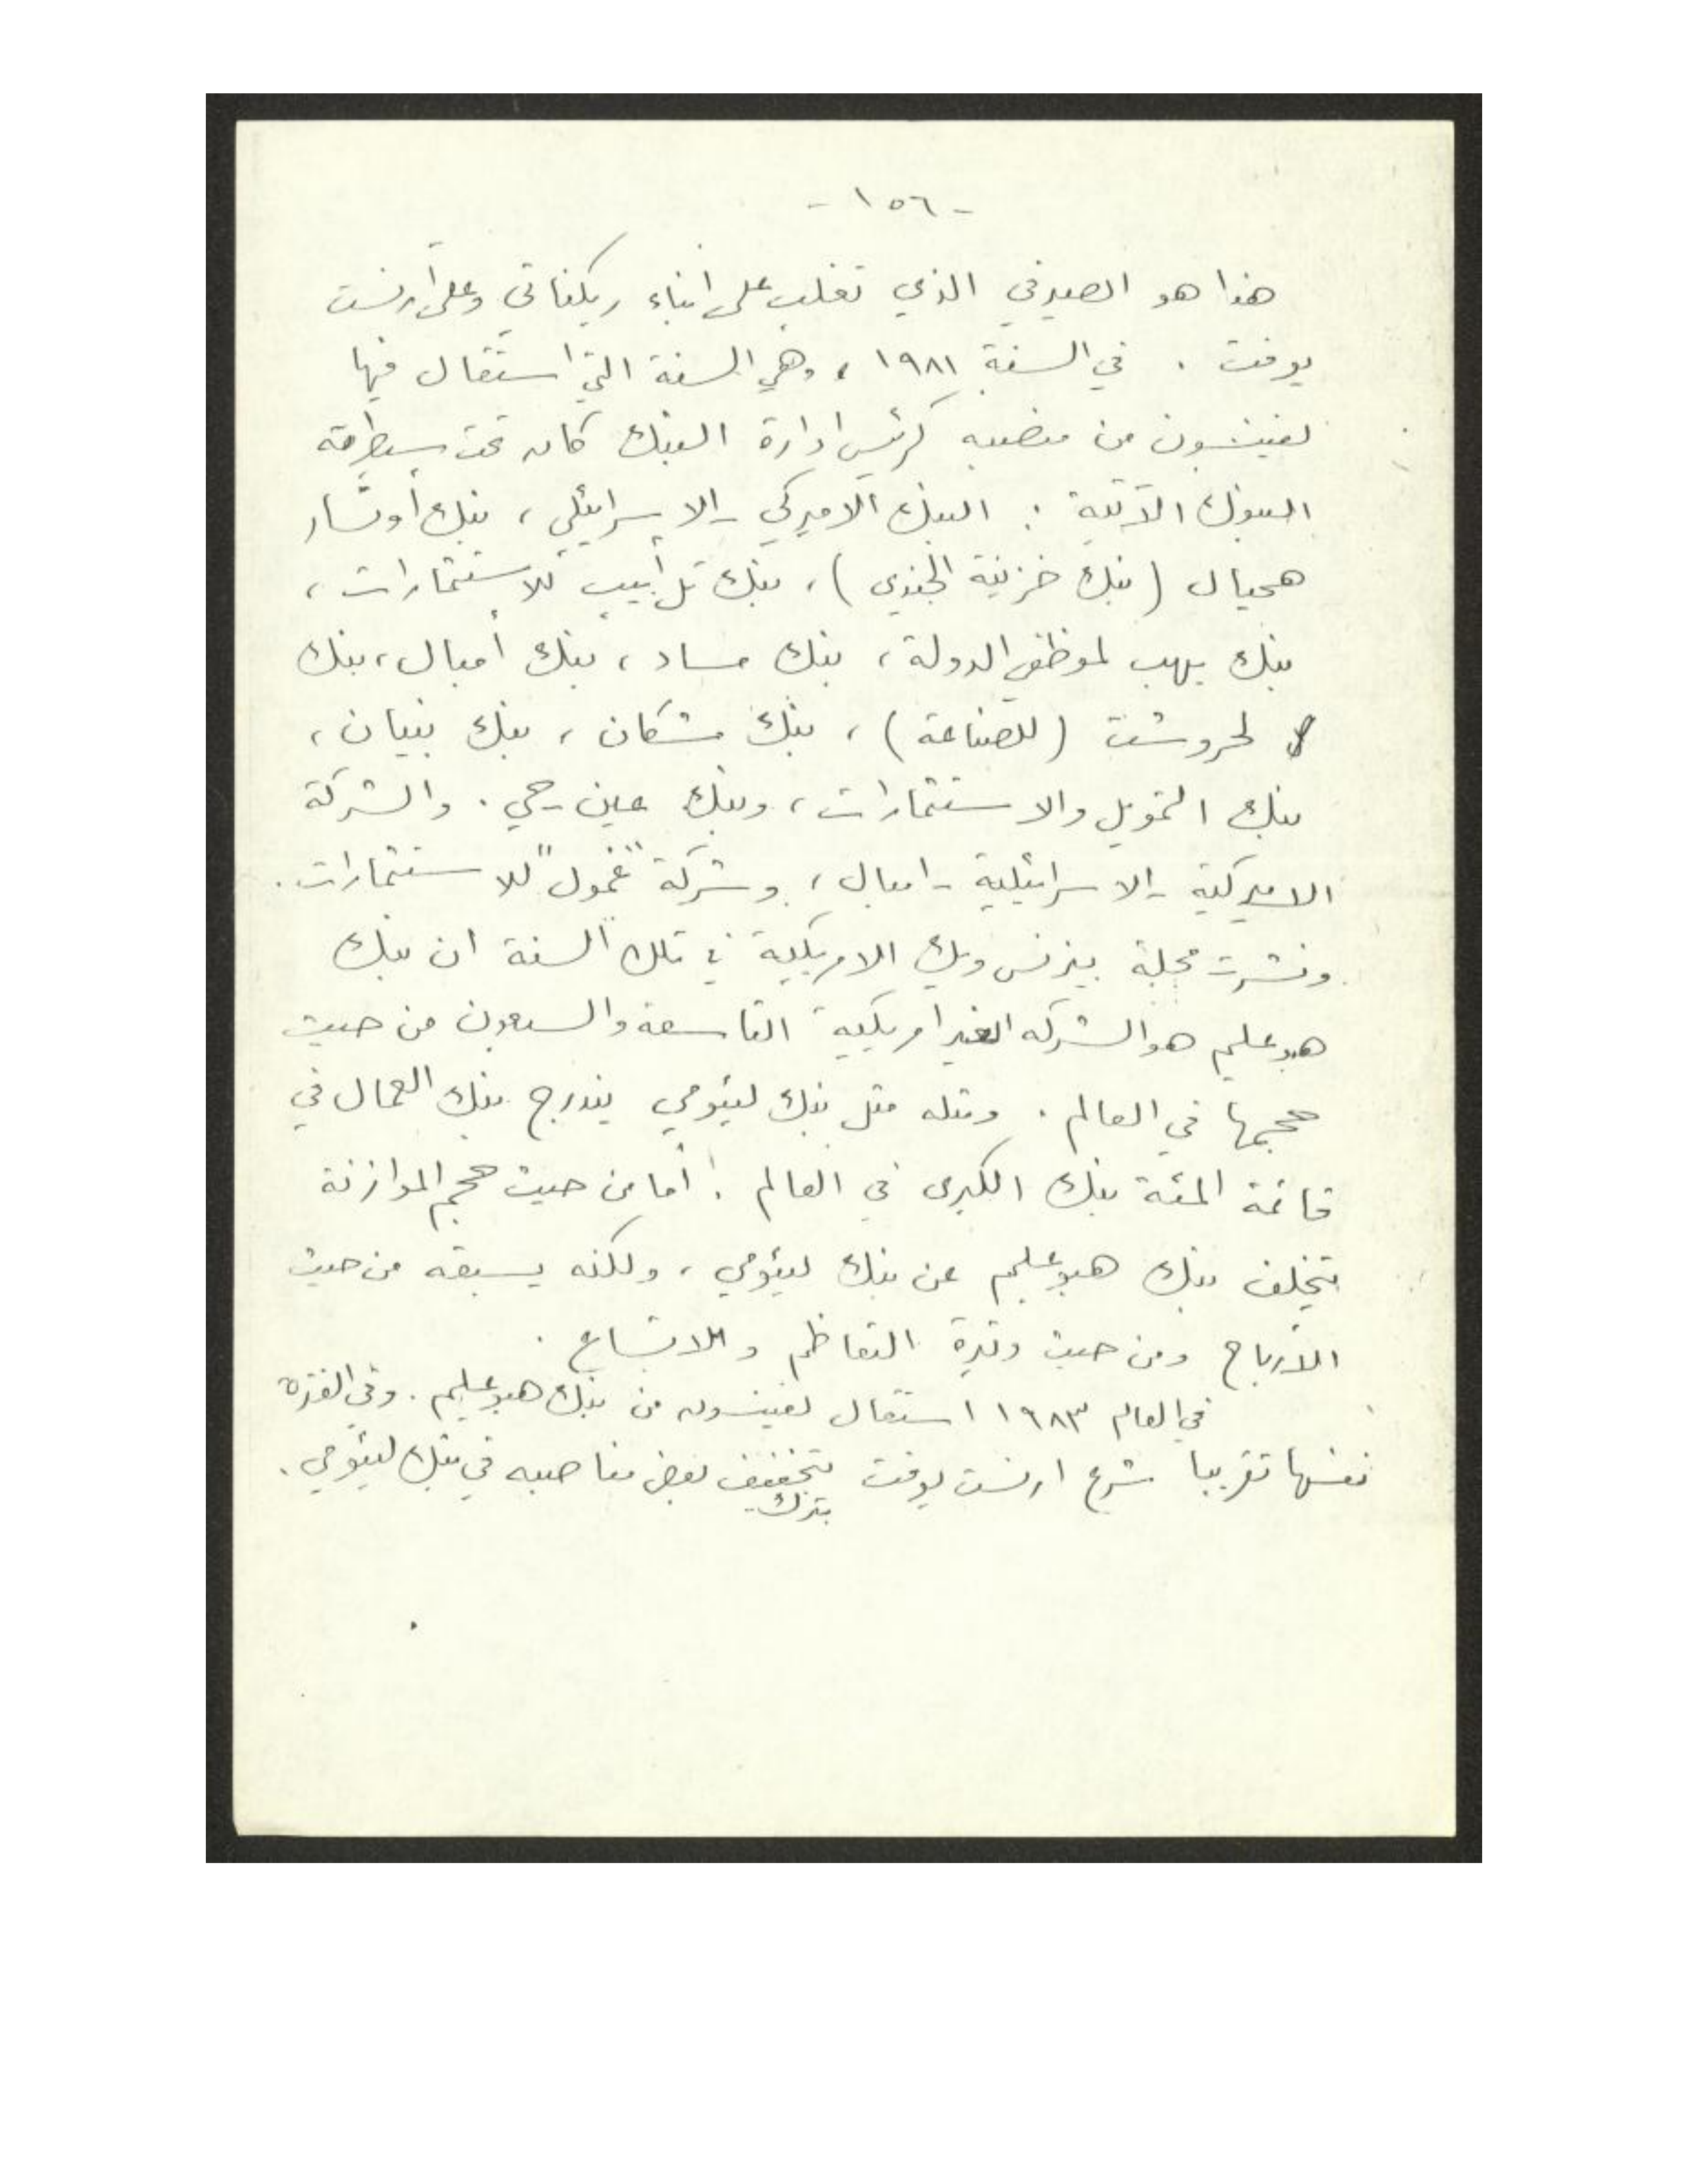 - ١٥٦ -
هذا هو الصيرفي الذي تغلب على ابناء ريكناتي وعلى أرنست
يوفت . في السنة ١٩٨١ ، وهي السنة التي استقال فيها
لفينسون من منصبه كرئيس ادارة البنك كان تحت سيطرته
البنوك الآتية : البنك الاميركي - الاسرائيلي ، بنك أوتسار
هحيال ( بنك خزينة الجندي ) ، بنك تل أبيب للاستثمارات ،
بنك يهب لموظفي الدولة ، بنك مساد ، بنك أمبال ، بنك
لحروشت ( للصناعة ) ، بنك مشكان ، بنك بنيان ،
بنك التمويل والاستثمارات ، وبنك عين - حي . والشركة
الاميركية - الاسرائيلية - امبال ، وشركة "غمول" للاستثمارات .
ونشرت مجلة بيزنس ويك الامريكية في تلك السنة ان بنك
هبوعليم هو الشركه الغير امريكية التاسعة والسبعون من حيث
حجمها في العالم . ومثله مثل بنك ليئومي يندرج بنك العمال في
قائمة المئة بنك الكبرى في العالم . أما من حيث حجم الموازنة
يتخلف بنك هبوعليم عن بنك ليئومي ، ولكنه يسبقه من حيث
الأرباح ومن حيث وتيرة التعاظم والاتساع .
في العام ١٩٨٣ استقال لفينسون من بنك هبوعليم . وفي الفترة
نفسها تقريبا شرع ارنست يوفت بتخفيف بعض مناصبه في بنك ليئومي .
بترك